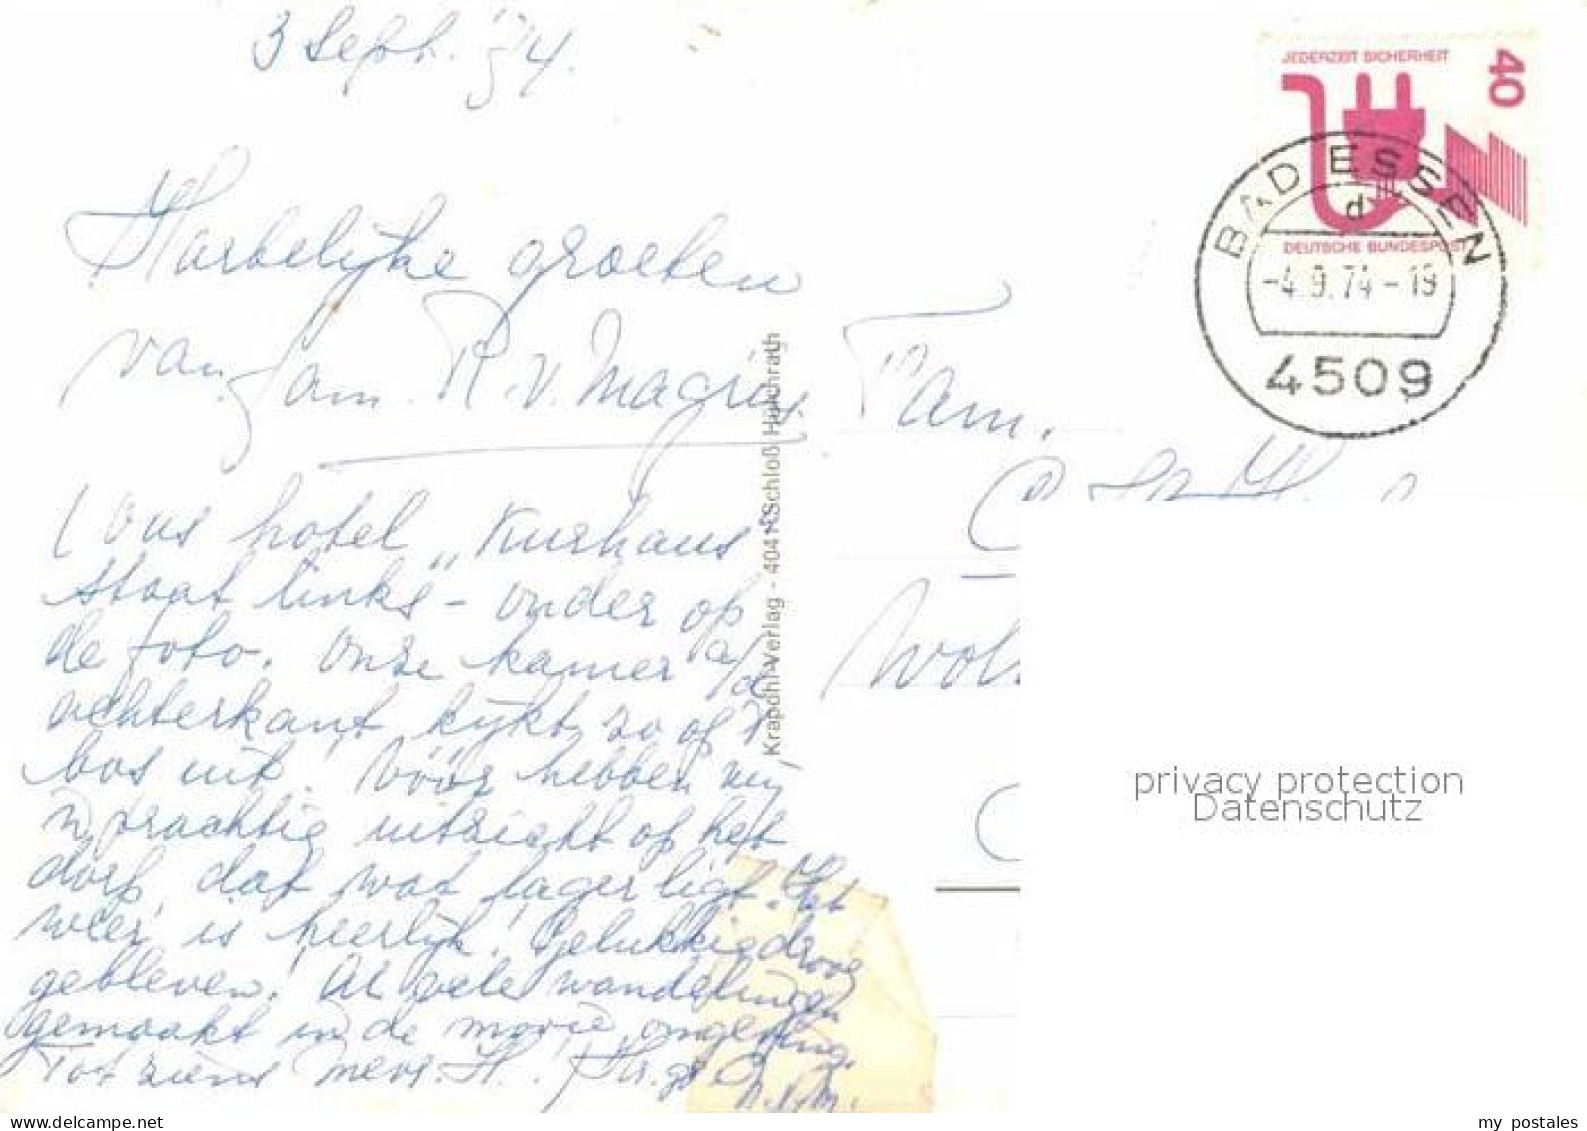 3 Sept. '74.
JEDERZEIT SICHERHEIT
40
DEUTSCHE BUNDESPOST
BAD ESSEN
d
-4.9.74-19
4509
Hartelijke groeten
van fam. R. v.
Fam.
(Ons hotel „Kurhaus"
staat links - onder op
de foto. Onze kamer a/d
achterkant kijkt zo op 't
bos uit. Vóór hebben wij
'n prachtig uitzicht op het
dorp, dat wat lager ligt. Het
weer is heerlijk! Gelukkig droog
gebleven. Al vele wandelingen
gemaakt in de mooie omgeving.
Tot ziens
Krapohl-Verlag - 4041 Schloß Hülchrath
privacy protection
Datenschutz
my postales